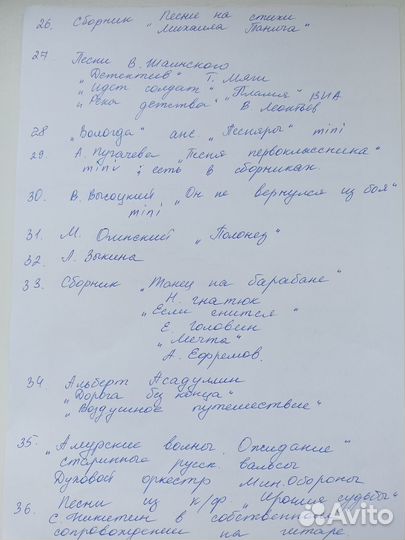 26. Сборник „Песни на стихи
Михаила Танича"
27 Песни В. Шаинского
„Детектив" Т. Мяги
„Идет солдат" „Пламя" ВИА
„Река детства" В. Леонтьев
28 „Вологда" анс. „Песняры" mini
29. А. Пугачева „Песня первоклассника"
mini; есть в сборниках.
30. В. Высоцкий „Он не вернулся из боя"
mini
31. М. Огинский „Полонез"
32. Л. Зыкина
33. Сборник „Танец на барабане"
Н. Гнатюк
„Если снится"
Е. Головин
„Мечта"
А. Ефремов.
34 Альберт Асадуллин
„Дорога без конца"
„Воздушное путешествие"
35. „Амурские волны. Ожидание"
старинные русск. вальсы
Духовой оркестр Мин. Обороны
36. Песни из к/ф „Ирония судьбы"
С. Никитин в собственном
сопровождении на гитаре
Avito